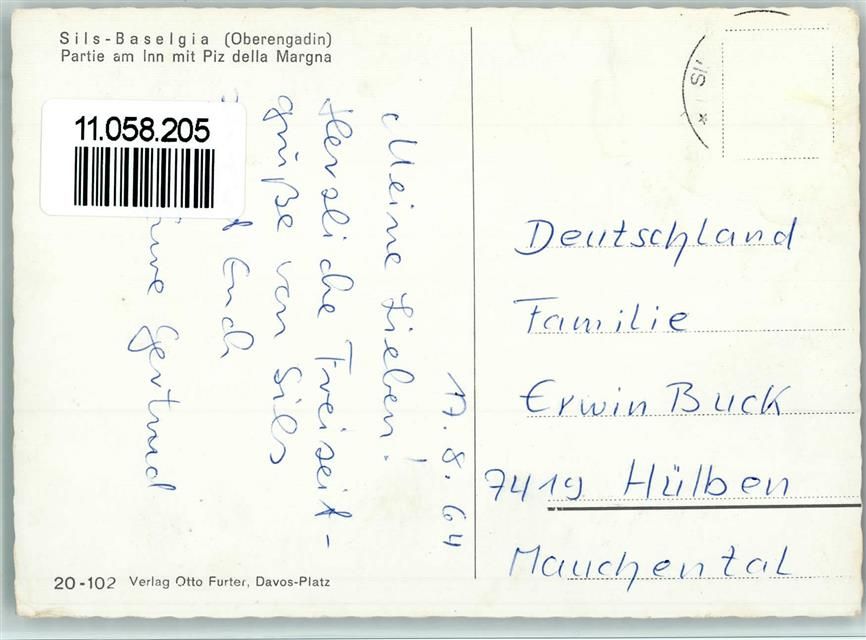 Sils-Baselgia (Oberengadin)
Partie am Inn mit Piz della Margna
11.058.205
17.8.64
Meine Lieben!
Herzliche Freizeit-
grüße von Sils
Euch
Gertrud
SIL
Deutschland
Familie
Erwin Buck
7419 Hülben
Mauchental
20-102 Verlag Otto Furter, Davos-Platz